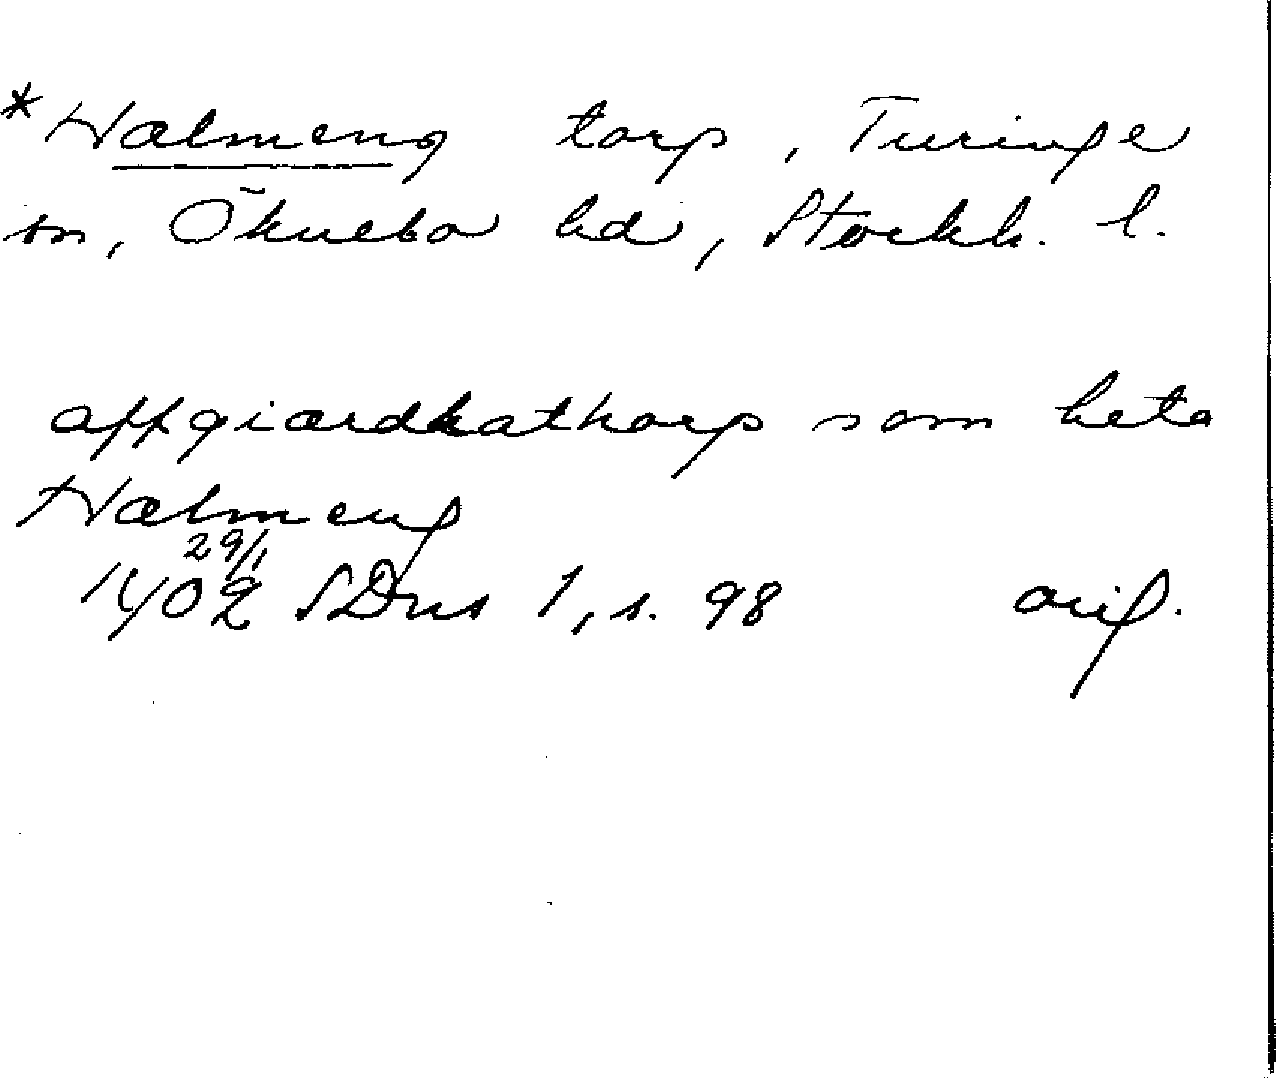 *Halmeng torp, Turinge
sn, Öknebo hd, Stockh. l.
affgiærdhathorp som heta
Halmeng
29/1
1402 SDns 1, s. 98 orig.